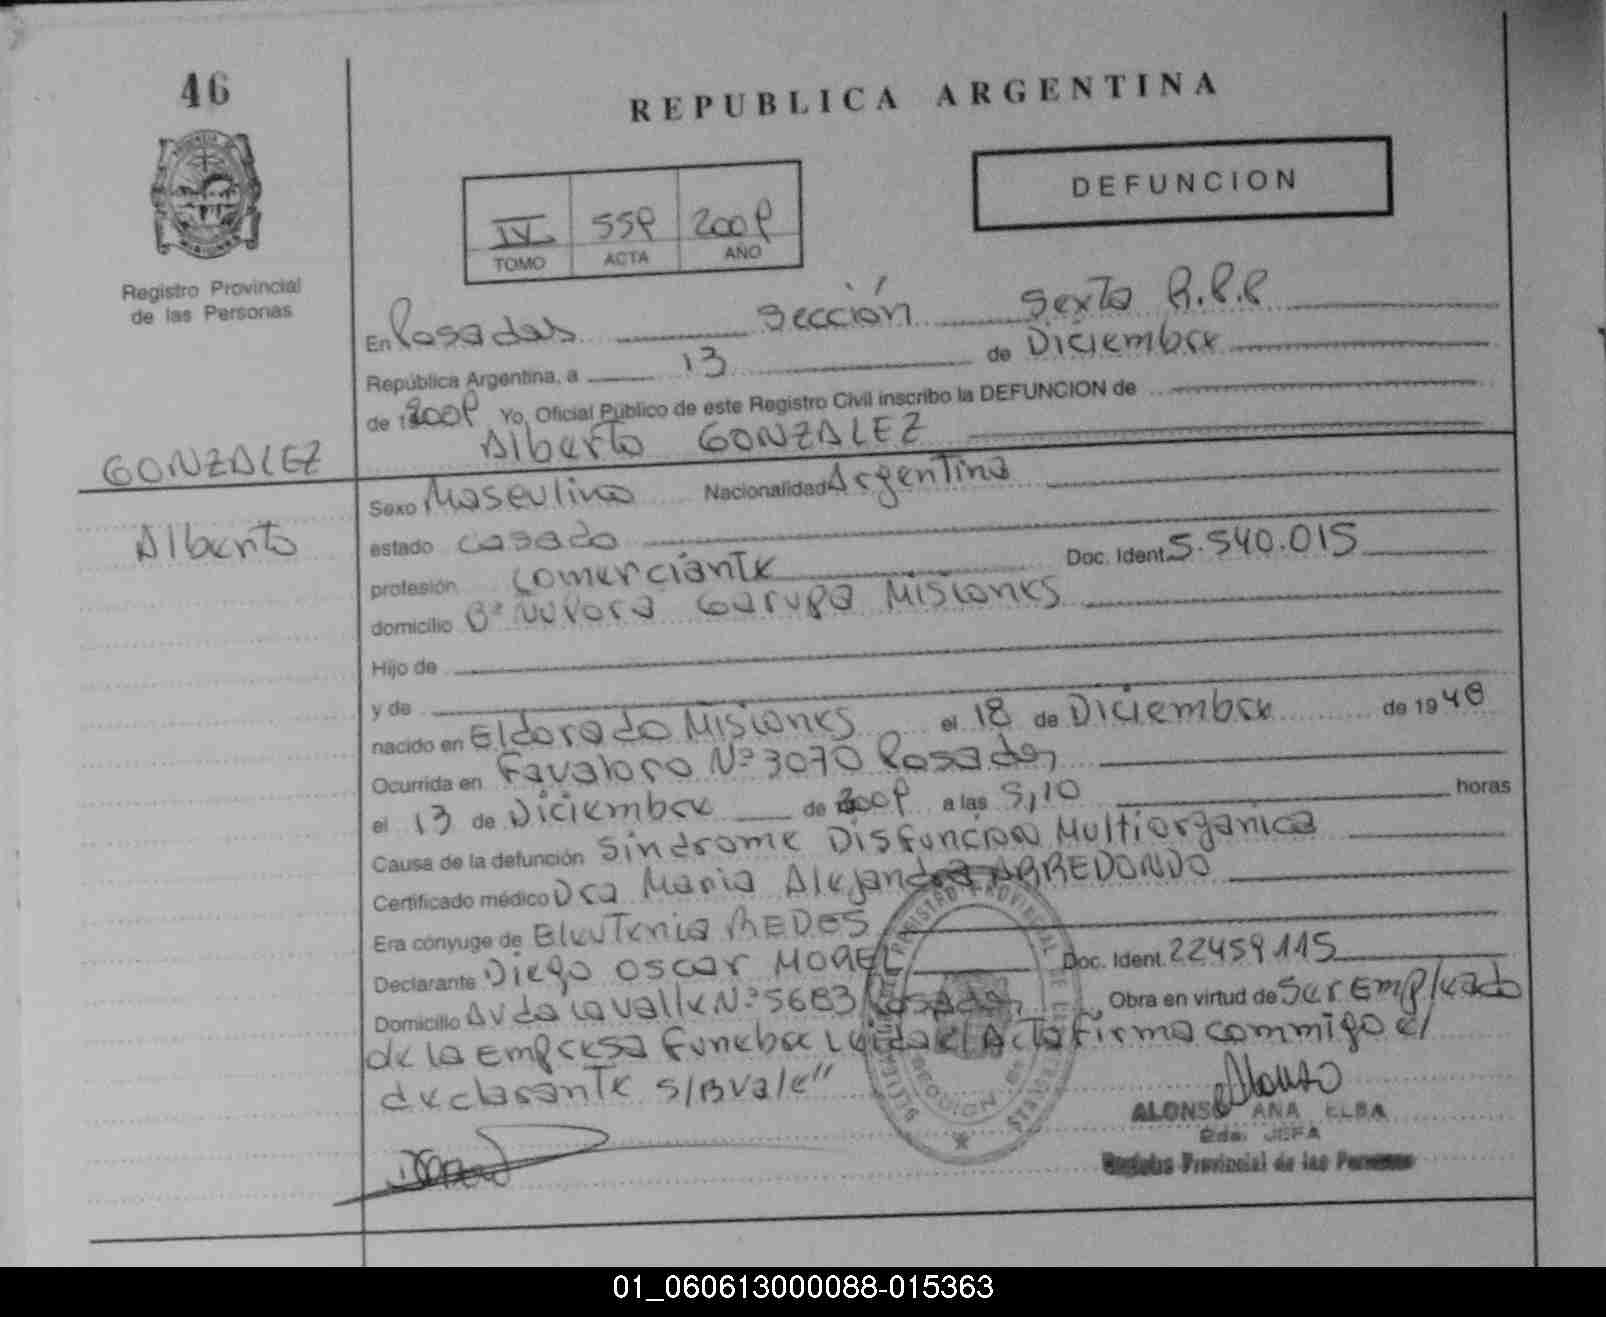 46
REPUBLICA ARGENTINA
DEFUNCION
IV 559 2009
TOMO ACTA AÑO
Registro Provincial
de las Personas
En Posadas Sección Sexta R.P.P
República Argentina, a 13 de Diciembre
de 2009 Yo, Oficial Público de este Registro Civil inscribo la DEFUNCION de
Alberto GONZALEZ
GONZALEZ
Alberto
Sexo Masculino Nacionalidad Argentina
estado casado
profesión comerciante Doc. Ident. 5.540.015
domicilio Garupa Misiones
Hijo de
y de
nacido en Eldorado Misiones el 18 de Diciembre de 1948
Ocurrida en Favaloro Nº 3070 Posadas
el 13 de Diciembre de 2009 a las 5,10 horas
Causa de la defunción Sindrome Disfuncion Multiorganica
Certificado médico Dra Maria Alejandra ARREDONDO
Era cónyuge de Eleuteria REDES
Declarante Diego Oscar MOREL Doc. Ident. 22459.115
Domicilio Avda Lavalle Nº 5683 Posadas, Obra en virtud de Ser Empleado
de la Empresa Funebre Leida el Acta Firma commigo el
declarante S/B Vale"
ALONSO ANA ELBA
2da. JEFA
Registro Provincial de las Personas
REGISTRO PROVINCIAL DE LAS PERSONAS
01_060613000088-015363